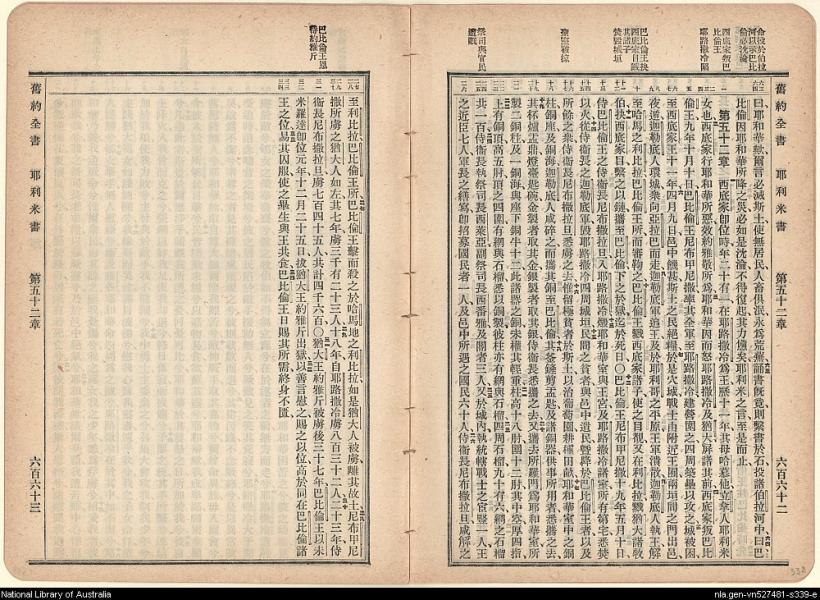 命投於伯拉
河以示巴比
倫必沈淪
西底家叛巴
比倫王
耶路撒冷陷
巴比倫王抉
西底家目戮
其諸子
焚毀城垣
聖室被掠
祭司與官民
遭戮
舊約全書 耶利米書 第五十二章 六百六十二
曰耶和華歟爾言必滅斯土使無居民人畜俱泯永爲荒蕪誦書旣竟則繫書於石投諸伯拉河中曰巴
比倫因耶和華所降之災必如是沈淪不得復起其力憊矣耶利米之言至是而止
第五十二章 西底家卽位時年二十有一在耶路撒冷爲王歷十一年其母哈慕他立拿人耶利米
女也西底家行耶和華所惡效約雅敬所爲耶和華因而怒耶路撒冷及猶大屏諸其前西底家叛巴比
倫王九年十月十日巴比倫王尼布甲尼撒率其全軍至耶路撒冷建營圍之四周築壘以攻之城被困
至西底家王十一年四月九日邑中饑甚斯土之民絕糧於是穴城戰士由附近王囿兩垣間之門出邑
夜遁迦勒底人環城衆向亞拉巴而走迦勒底軍追王及於耶利哥之平原王軍潰散迦勒底人執王解
至哈馬之利比拉巴比倫王所而審鞫之巴比倫王戮西底家諸子使之目覩又在利比拉戮猶大諸牧
伯抉西底家目繫之以鏈攜至巴比倫下之於獄迄於死日○巴比倫王尼布甲尼撒十九年五月十日
侍巴比倫王之侍衛長尼布撒拉旦入耶路撒冷燬耶和華室與王宮及耶路撒冷諸室所有第宅悉焚
以火從侍衛長之迦勒底軍毀耶路撒冷四周城垣民間之貧者與邑中遺民曁降於巴比倫王者以及
所餘之衆侍衛長尼布撒拉旦悉虜之去惟留極貧者於斯土以治葡萄園耕種田畝耶和華室中之銅
柱銅座及銅海迦勒底人咸碎之而攜其銅至巴比倫其釜鏟剪盂匙及諸銅器供事所用者悉攜之去
其杯爐盂鼎燈臺匙碗金製者取其金銀製者取其銀侍衛長悉攜之去又攜去所羅門爲耶和華室所
製二銅柱及一銅海與座下銅牛十二此諸器之銅未權其輕重柱高十八肘圍十二肘其中空厚四指
上有銅頂高五肘頂之四圍有網與石榴悉以銅製彼柱亦有網與石榴四周石榴九十有六網之石榴
共一百侍衛長執祭司長西萊亞副祭司長西番雅及閽者三人又於城內執統轄戰士之宦豎一人王
之近臣七人軍長之繕寫卽招募國民者一人及邑中所遇之國民六十人侍衛長尼布撒拉旦咸解之
巴比倫王恩
待約雅斤
至利比拉巴比倫王所巴比倫王擊而殺之於哈馬地之利比拉如是猶大人被虜離其故土尼布甲尼
撒所虜之猶大人如左其七年虜三千有二十三人十八年自耶路撒冷虜八百三十二人二十三年侍
衛長尼布撒拉旦虜七百四十五人共計四千六百○猶大王約雅斤被虜後三十七年巴比倫王以未
米羅達卽位元年十二月二十五日拔猶大王約雅斤出獄以善言慰之賜之以位高於同在巴比倫諸
王之位易其囚服使之畢生與王共食巴比倫王日賜其所需終身不匱
舊約全書 耶利米書 第五十二章 六百六十三
National Library of Australia
nla.gen-vn527481-s339-e